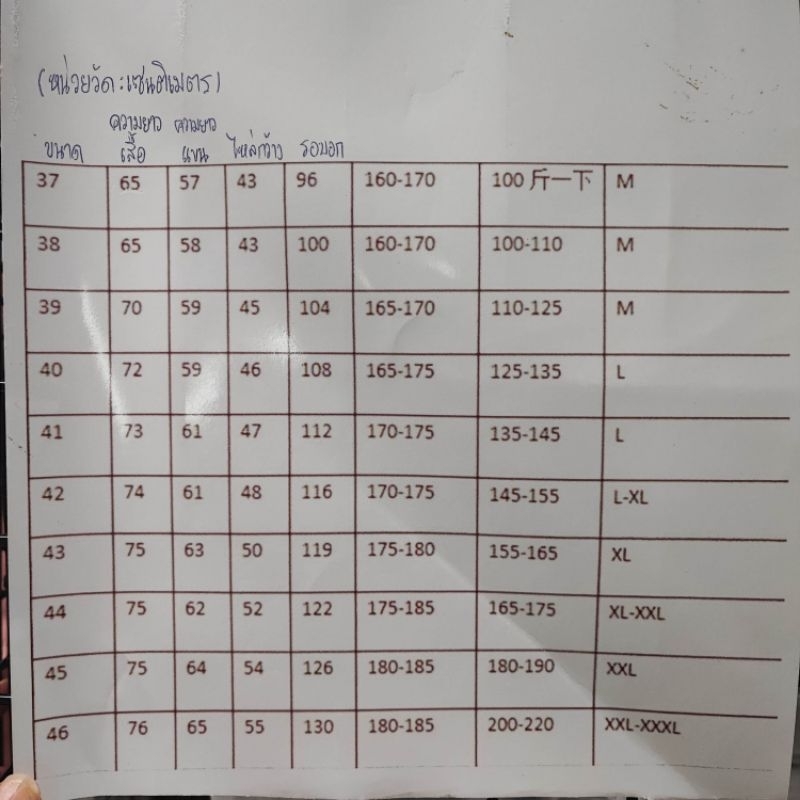 (หน่วยวัด:เซนติเมตร)
ขนาด ความยาวเสื้อ ความยาวแขน ไหล่กว้าง รอบอก
37 65 57 43 96 160-170 100 斤一下 M
38 65 58 43 100 160-170 100-110 M
39 70 59 45 104 165-170 110-125 M
40 72 59 46 108 165-175 125-135 L
41 73 61 47 112 170-175 135-145 L
42 74 61 48 116 170-175 145-155 L-XL
43 75 63 50 119 175-180 155-165 XL
44 75 62 52 122 175-185 165-175 XL-XXL
45 75 64 54 126 180-185 180-190 XXL
46 76 65 55 130 180-185 200-220 XXL-XXXL